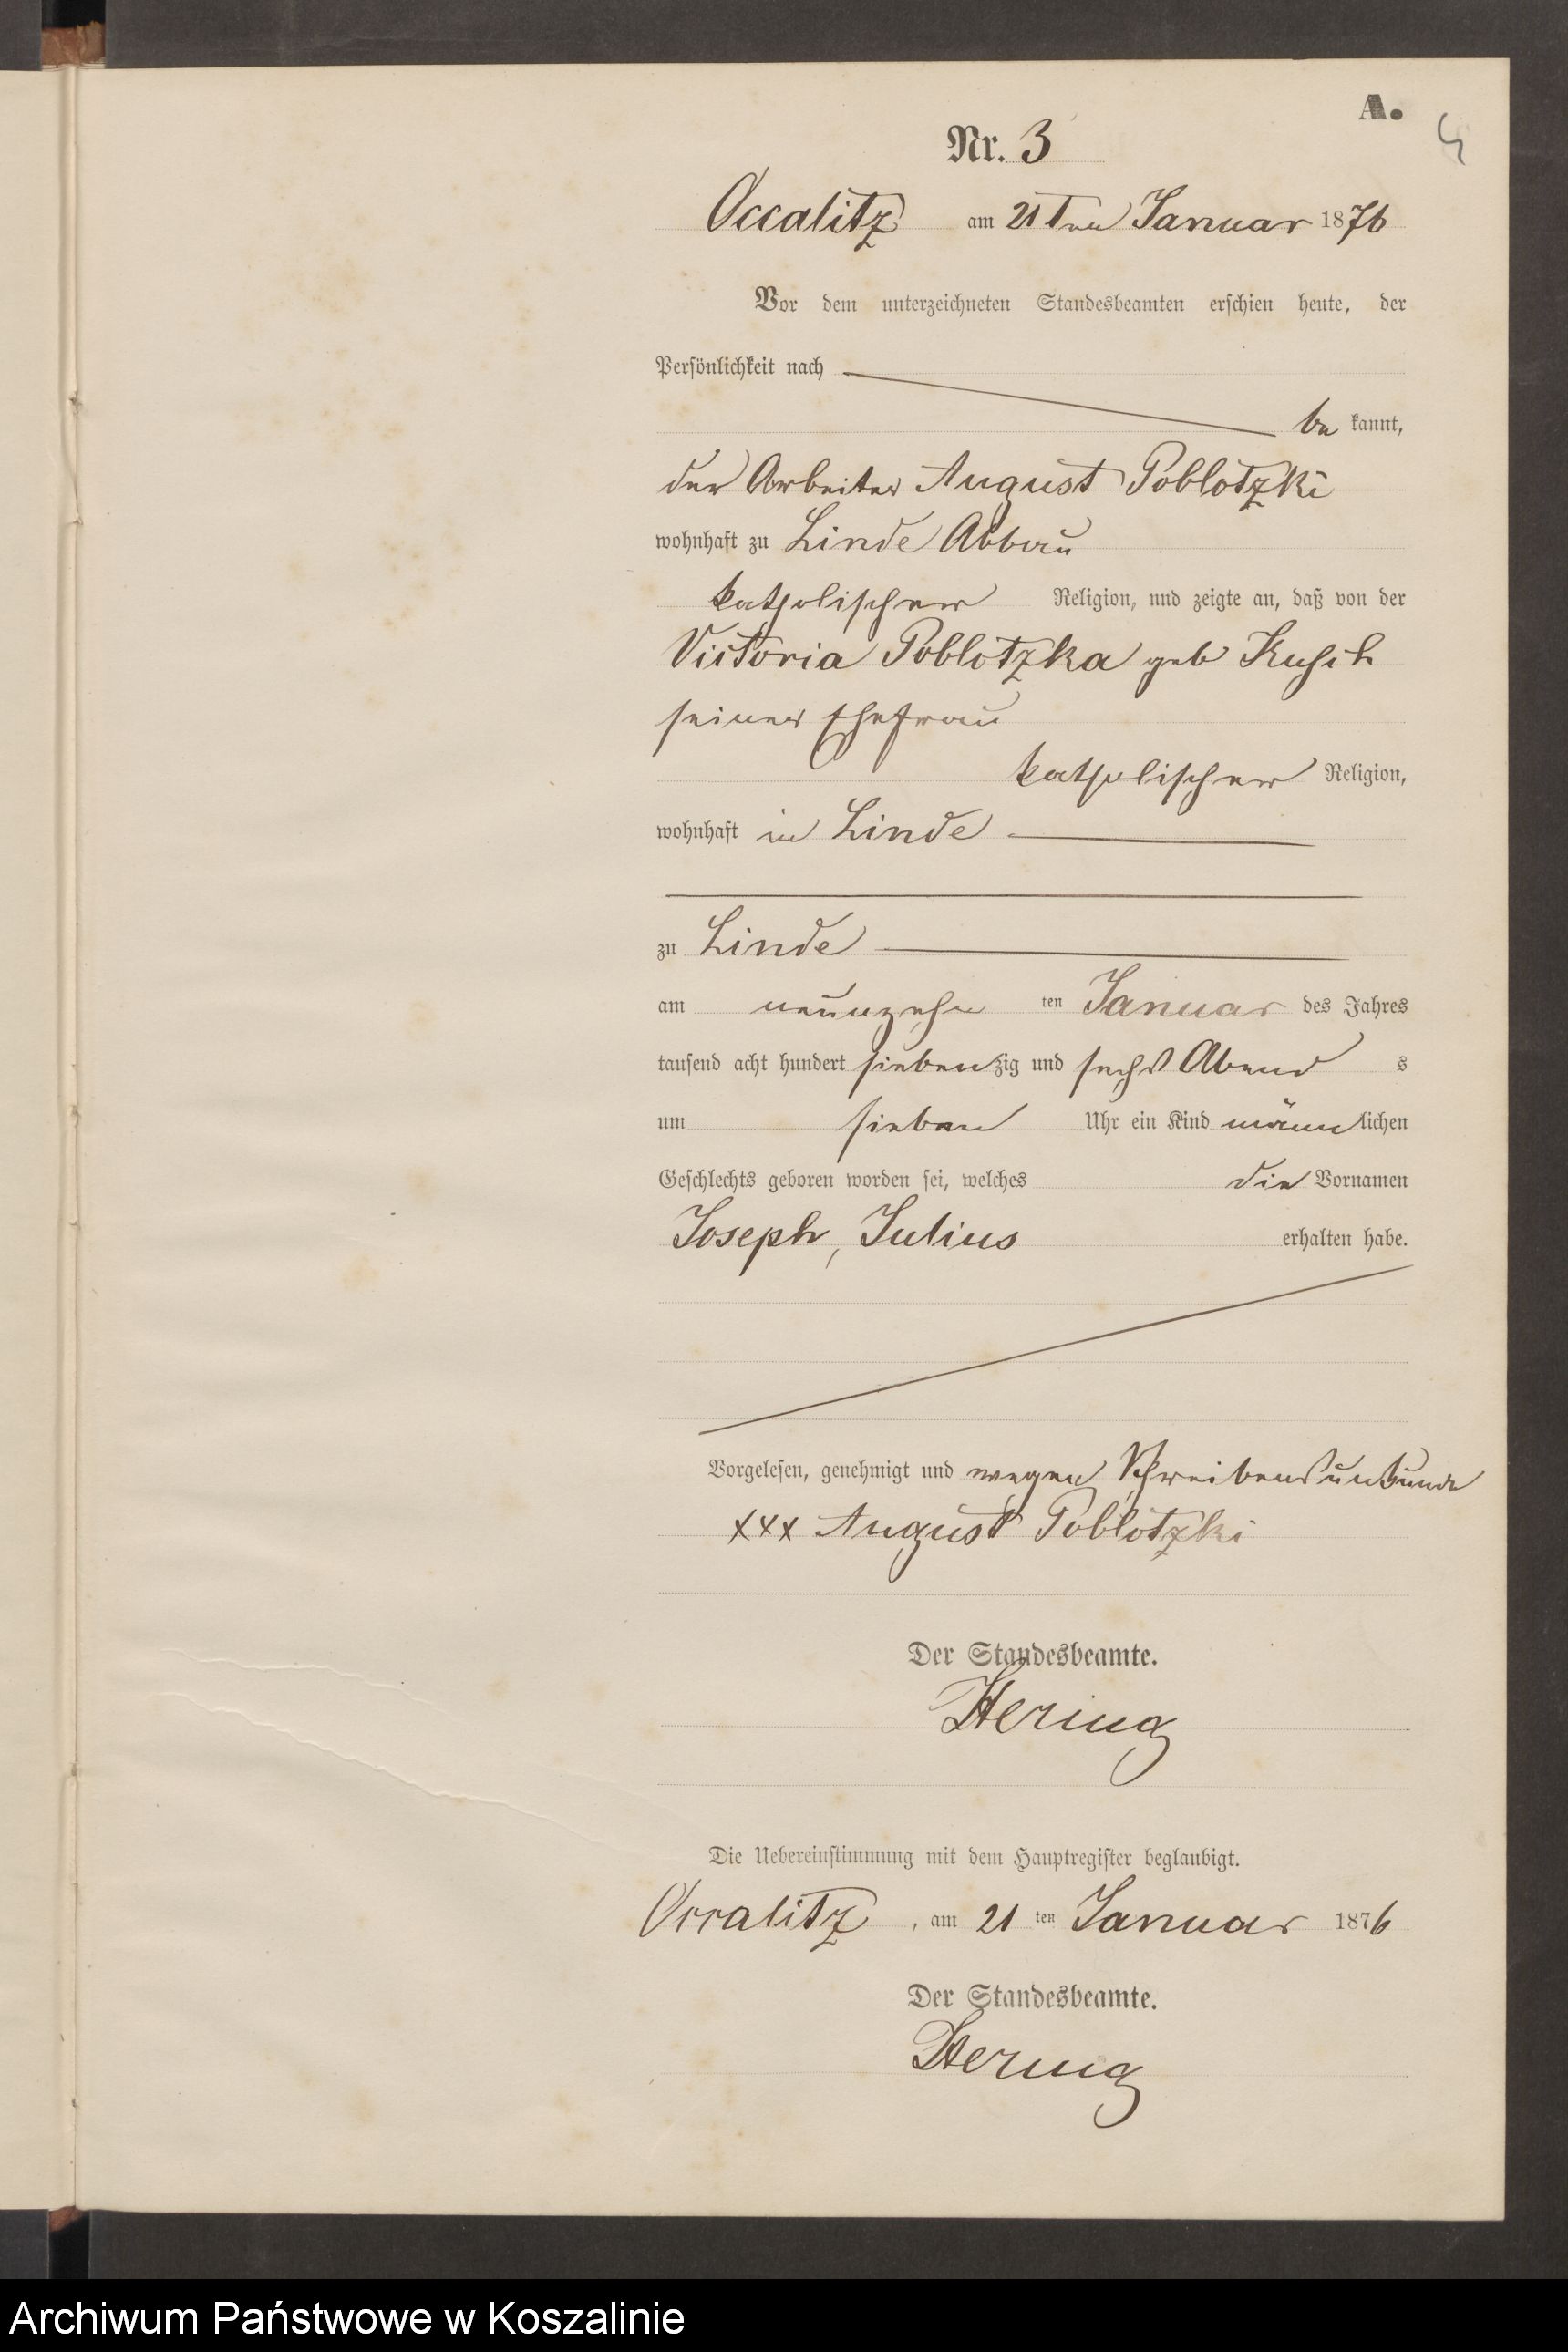 A.
4
Nr. 3
Occalitz am 21ten Januar 1876
Vor dem unterzeichneten Standesbeamten erschien heute, der
Persönlichkeit nach
be kannt,
der Arbeiter August Poblotzki
wohnhaft zu Linde Abbau
katholischer Religion, und zeigte an, daß von der
Victoria Poblotzka geb Kusch
seiner Ehefrau
katholischer Religion,
wohnhaft in Linde
zu Linde
am neunzehn ten Januar des Jahres
tausend acht hundert siebenzig und sechs Abend s
um sieben Uhr ein Kind männlichen
Geschlechts geboren worden sei, welches die Vornamen
Joseph, Julius erhalten habe.
Vorgelesen, genehmigt und wegen Schreibensunkunde
xxx August Poblotzki
Der Standesbeamte.
Hering
Die Uebereinstimmung mit dem Hauptregister beglaubigt.
Occalitz, am 21 ten Januar 1876
Der Standesbeamte.
Hering
Archiwum Państwowe w Koszalinie